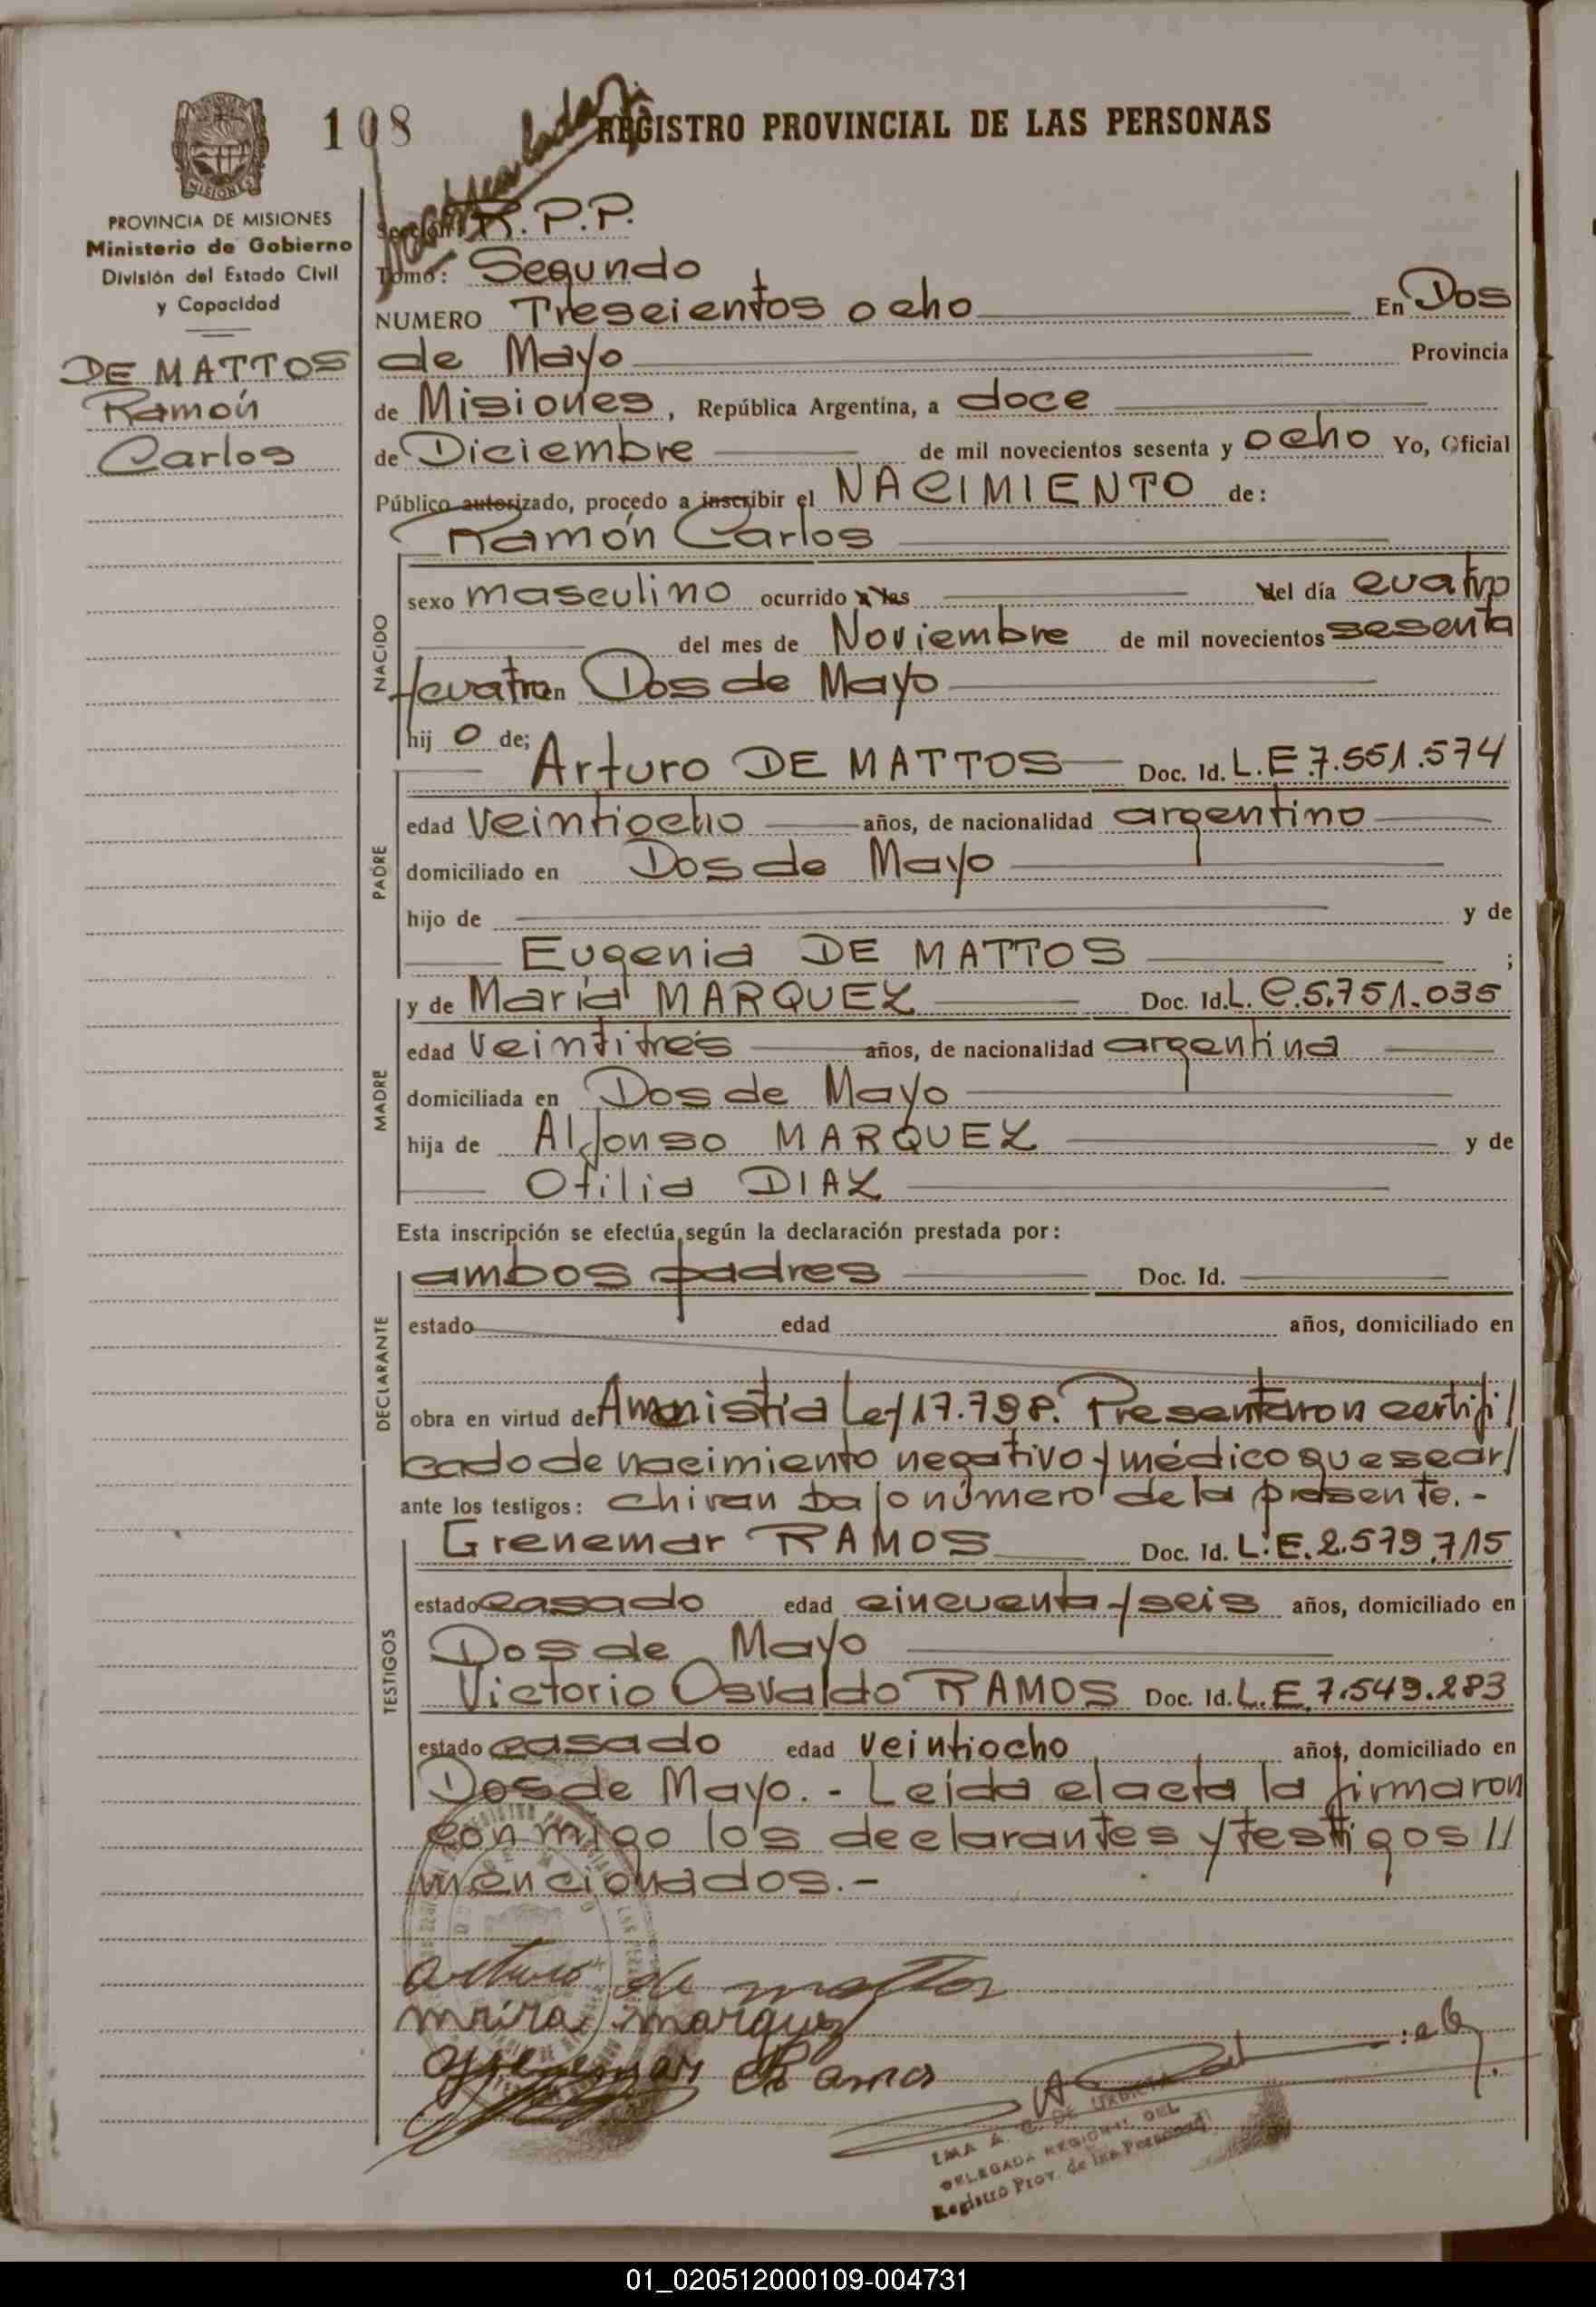 108
REGISTRO PROVINCIAL DE LAS PERSONAS
MISIONES
PROVINCIA DE MISIONES
Ministerio de Gobierno
División del Estado Civil
y Capacidad
DE MATTOS
Ramón
Carlos
Sección R.P.P.
Tomo: Segundo
NUMERO Trescientos ocho En Dos
de Mayo Provincia
de Misiones, República Argentina, a doce
de Diciembre de mil novecientos sesenta y ocho Yo, Oficial
Público autorizado, procedo a inscribir el NACIMIENTO de:
Ramón Carlos
NACIDO
sexo masculino ocurrido a las del día cuatro
del mes de Noviembre de mil novecientos sesenta
/cuatro en Dos de Mayo
hij o de;
PADRE
Arturo DE MATTOS Doc. Id. L.E.7.551.574
edad veintiocho años, de nacionalidad argentino
domiciliado en Dos de Mayo
hijo de y de
Eugenia DE MATTOS ;
MADRE
y de María MARQUEZ Doc. Id. L.C.5.751.035
edad veintitrés años, de nacionalidad argentina
domiciliada en Dos de Mayo
hija de Alfonso MARQUEZ y de
Otilia DIAZ
Esta inscripción se efectúa según la declaración prestada por:
DECLARANTE
ambos padres Doc. Id.
estado edad años, domiciliado en
obra en virtud de: Amnistía Ley 17.798. Presentaron certifi/
cado de nacimiento negativo y médico que se ar/
ante los testigos: chivan bajo número de la presente.-
TESTIGOS
Grenemar RAMOS Doc. Id. L.E.2.579.715
estado casado edad cincuenta y seis años, domiciliado en
Dos de Mayo
Victorio Osvaldo RAMOS Doc. Id. L.E.7.549.283
estado casado edad veintiocho años, domiciliado en
Dos de Mayo.- Leída el acta la firmaron
conmigo los declarantes y testigos //
mencionados.-
arturo de mattos
maira marquez
grenemar Ramos
DELEGADA REGIONAL DEL
Registro Prov. de las Personas
01_020512000109-004731